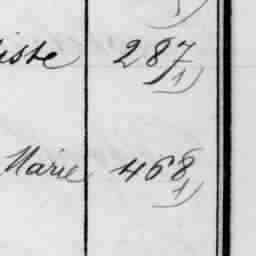 iste 287
1)
Marie 468
1)